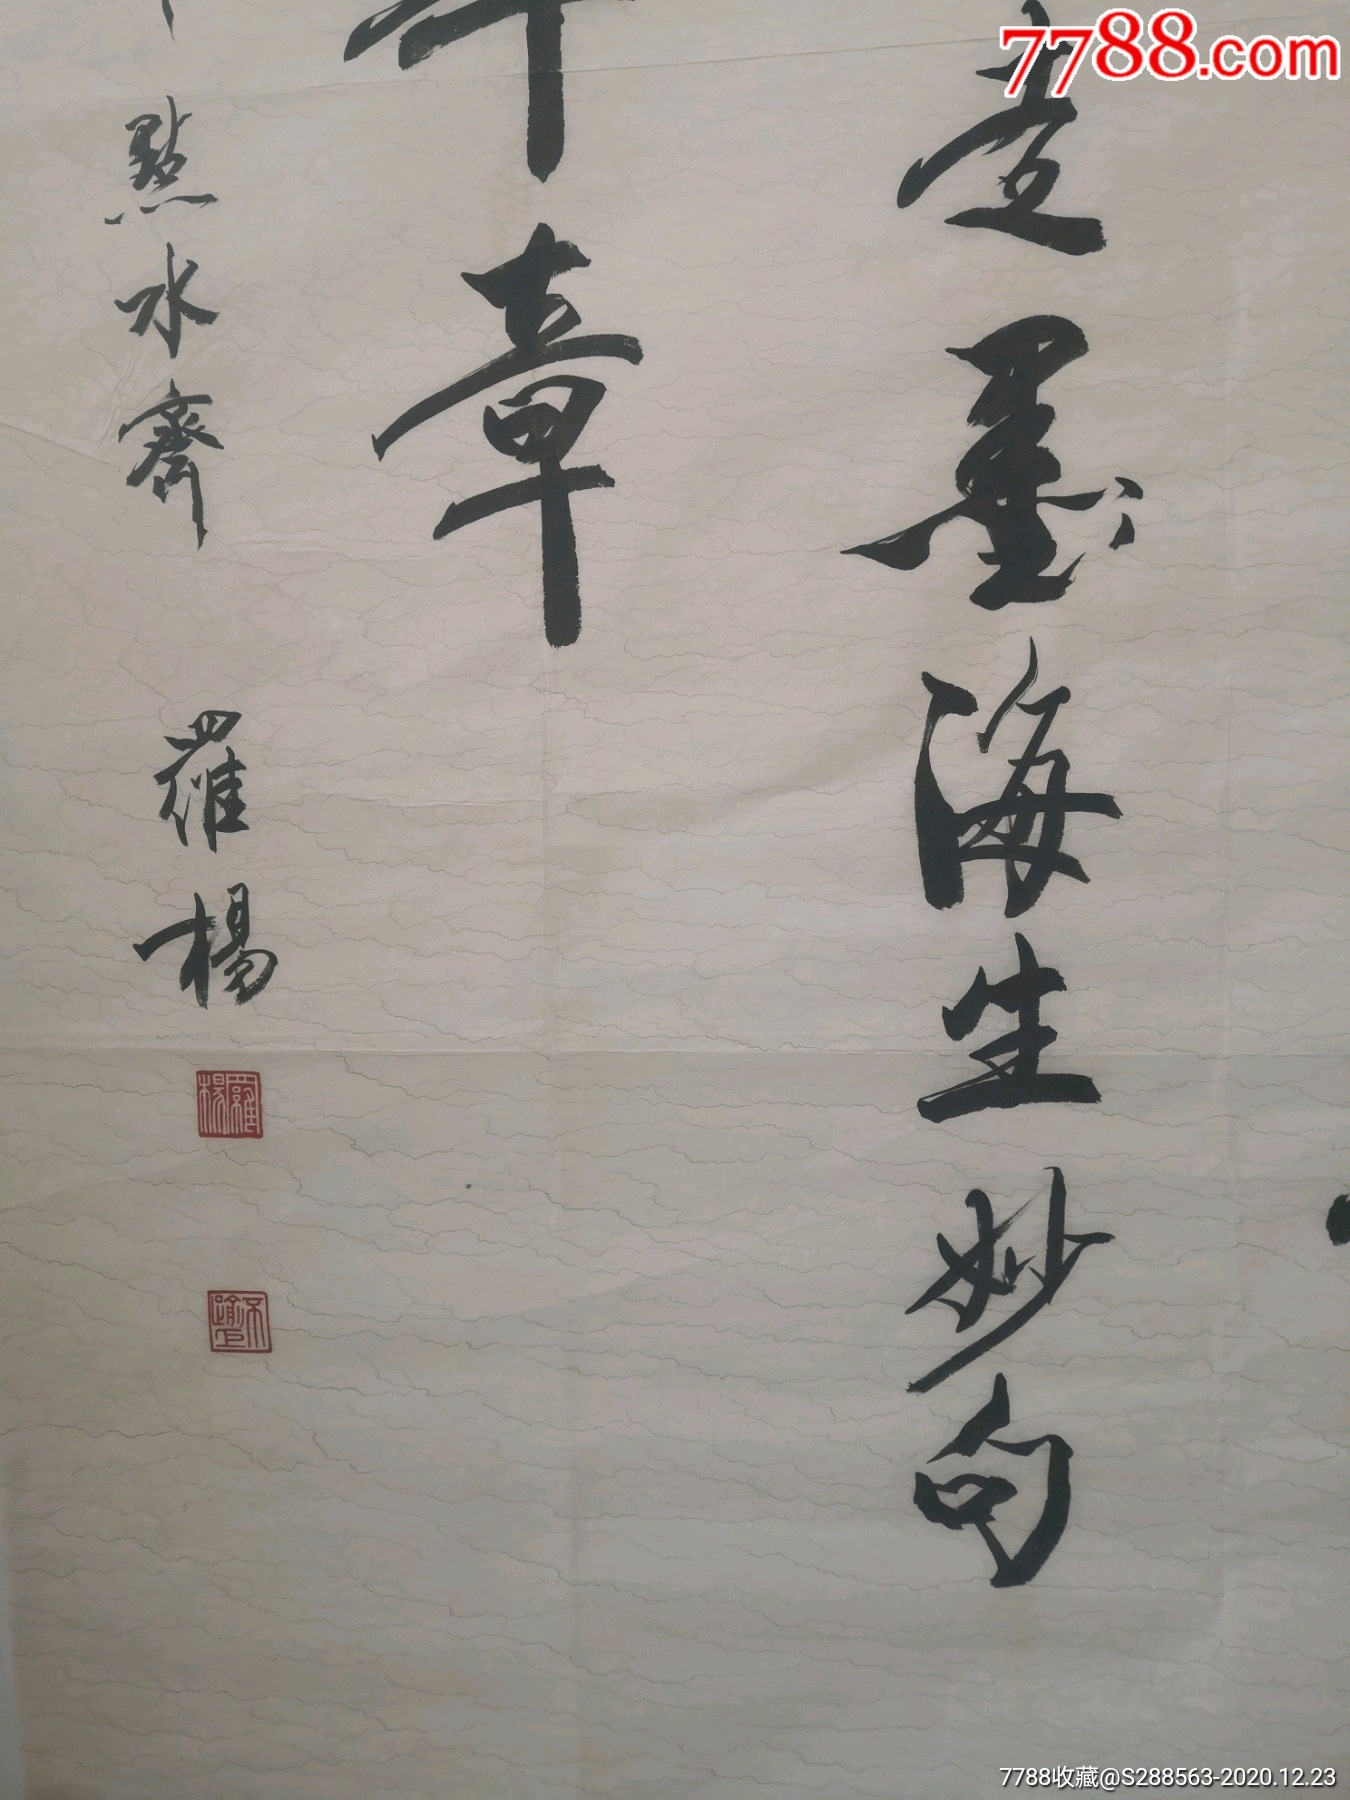 7788.com
墨海生妙句
章
點水齋 羅楊
羅楊
不逾
7788收藏@S288563-2020.12.23